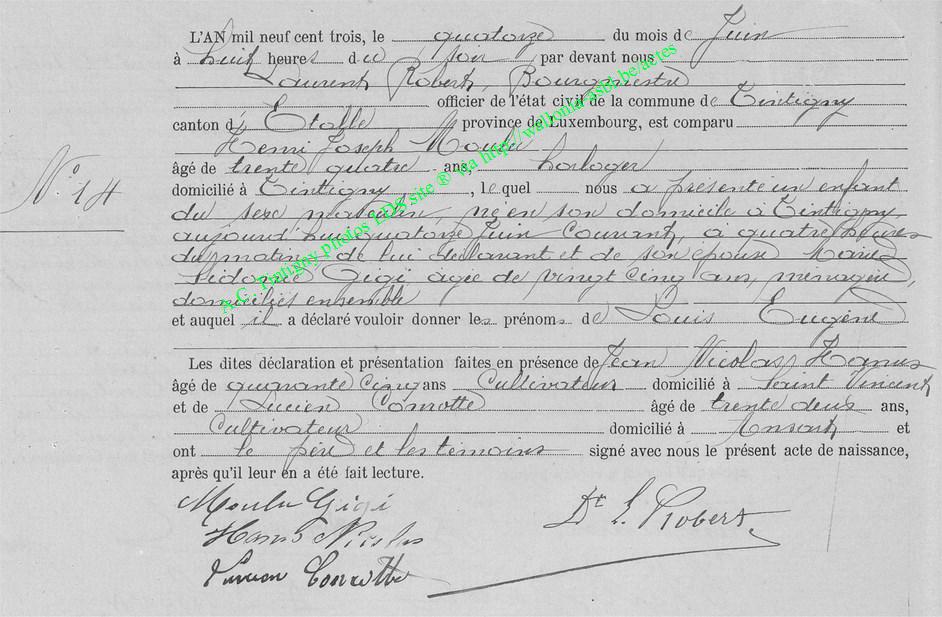 L'AN mil neuf cent trois, le quatorze du mois de Juin
à huit heures du soir par devant nous
Laurent Robert, Bourgmestre
officier de l'état civil de la commune de Tintigny
canton d'Etalle province de Luxembourg, est comparu
Henri Joseph Moulu
N° 14
âgé de trente quatre ans, horloger
domicilié à Tintigny, lequel nous a présenté un enfant
du sexe masculin, né en son domicile à Tintigny,
aujourd'hui quatorze Juin courant, à quatre heures
du matin, de lui déclarant et de son épouse Marie
Gigi âgée de vingt cinq ans, ménagère,
domiciliés ensemble
et auquel il a déclaré vouloir donner les prénoms de Louis Eugène
Les dites déclaration et présentation faites en présence de Jean Nicolas Hanus
âgé de quarante cinq ans Cultivateur domicilié à Saint Vincent
et de Lucien Conrotte âgé de trente deux ans,
Cultivateur domicilié à Ansart et
ont le père et les témoins signé avec nous le présent acte de naissance,
après qu'il leur en a été fait lecture.
Moulu Gigi
Dr L. Robert
Hanus Nicolas
Lucien Conrotte
A.C. Tintigny photos LDS site ® via http://wallonia-asbl.be/actes